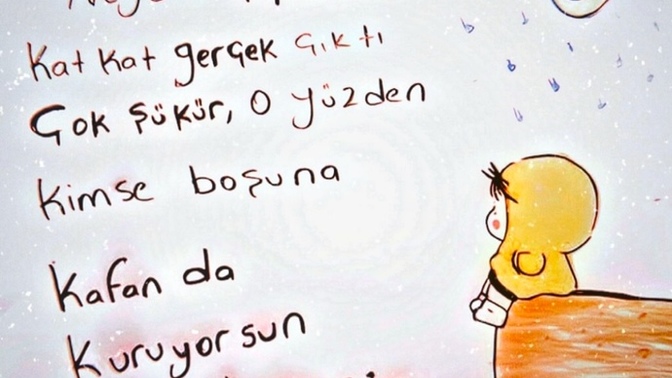 Kat Kat gerçek çıktı
Çok Şükür, O yüzden
Kimse boşuna
Kafan da
Kuruyorsun